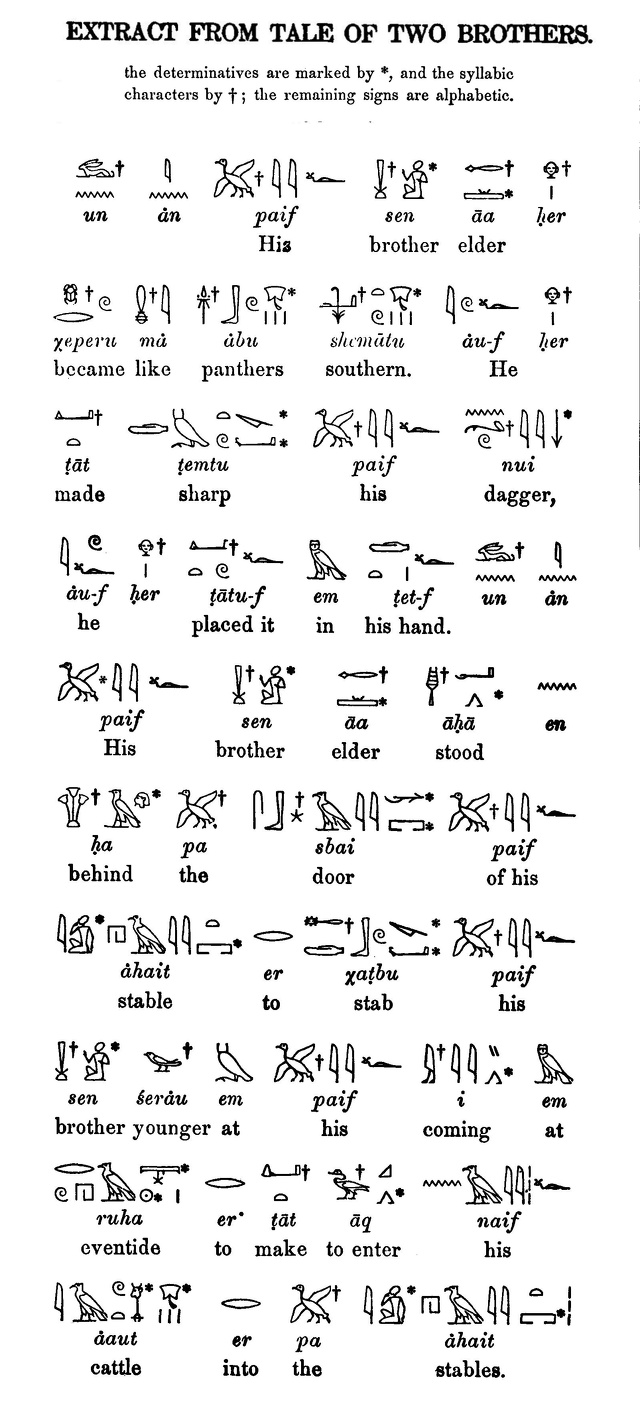 EXTRACT FROM TALE OF TWO BROTHERS.
the determinatives are marked by *, and the syllabic
characters by †; the remaining signs are alphabetic.
un ȧn paif sen āa ḥer
His brother elder
χeperu mȧ ȧbu shemātu ȧu-f ḥer
became like panthers southern. He
ṭāt ṭemtu paif nui
made sharp his dagger,
ȧu-f ḥer ṭātu-f em ṭet-f un ȧn
he placed it in his hand.
paif sen āa āḥā en
His brother elder stood
ḥa pa sbai paif
behind the door of his
ȧhait er χaṭbu paif
stable to stab his
sen śerȧu em paif i em
brother younger at his coming at
ruha er ṭāt āq naif
eventide to make to enter his
ȧaut er pa ȧhait
cattle into the stables.